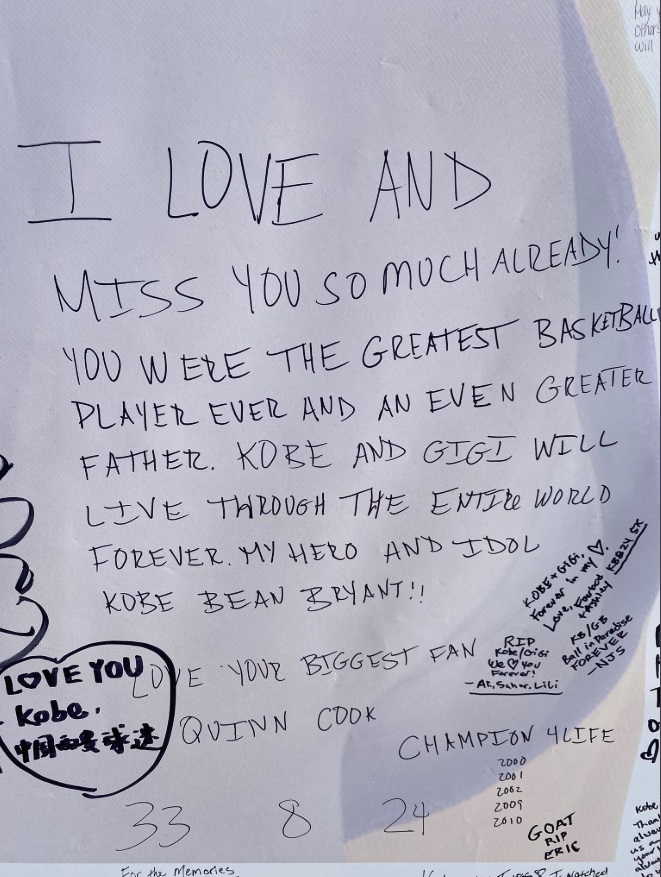 May
others
will
I LOVE AND
MISS YOU SO MUCH ALREADY!
YOU WERE THE GREATEST BASKETBALL
PLAYER EVER AND AN EVEN GREATER
FATHER. KOBE AND GIGI WILL
LIVE THROUGH THE ENTIRE WORLD
FOREVER. MY HERO AND IDOL
KOBE BEAN BRYANT!!
LOVE YOUR BIGGEST FAN
QUINN COOK
CHAMPION 4LIFE
2000
2001
2002
2009
2010
33 8 24
LOVE YOU
Kobe.
中国 球迷
KOBE + GIGI,
Forever in my ♡.
Love,
+ Ashley
KB824 SK
KB/GB
Ball in Paradise
FOREVER
-NJS
RIP
Kobe/GiGi
We ♡ You
Forever!
- Ali, Sahar, LiLi
GOAT
RIP
ERIC
For the Memories
I watched
Kobe,
Than
alwa
us a
your